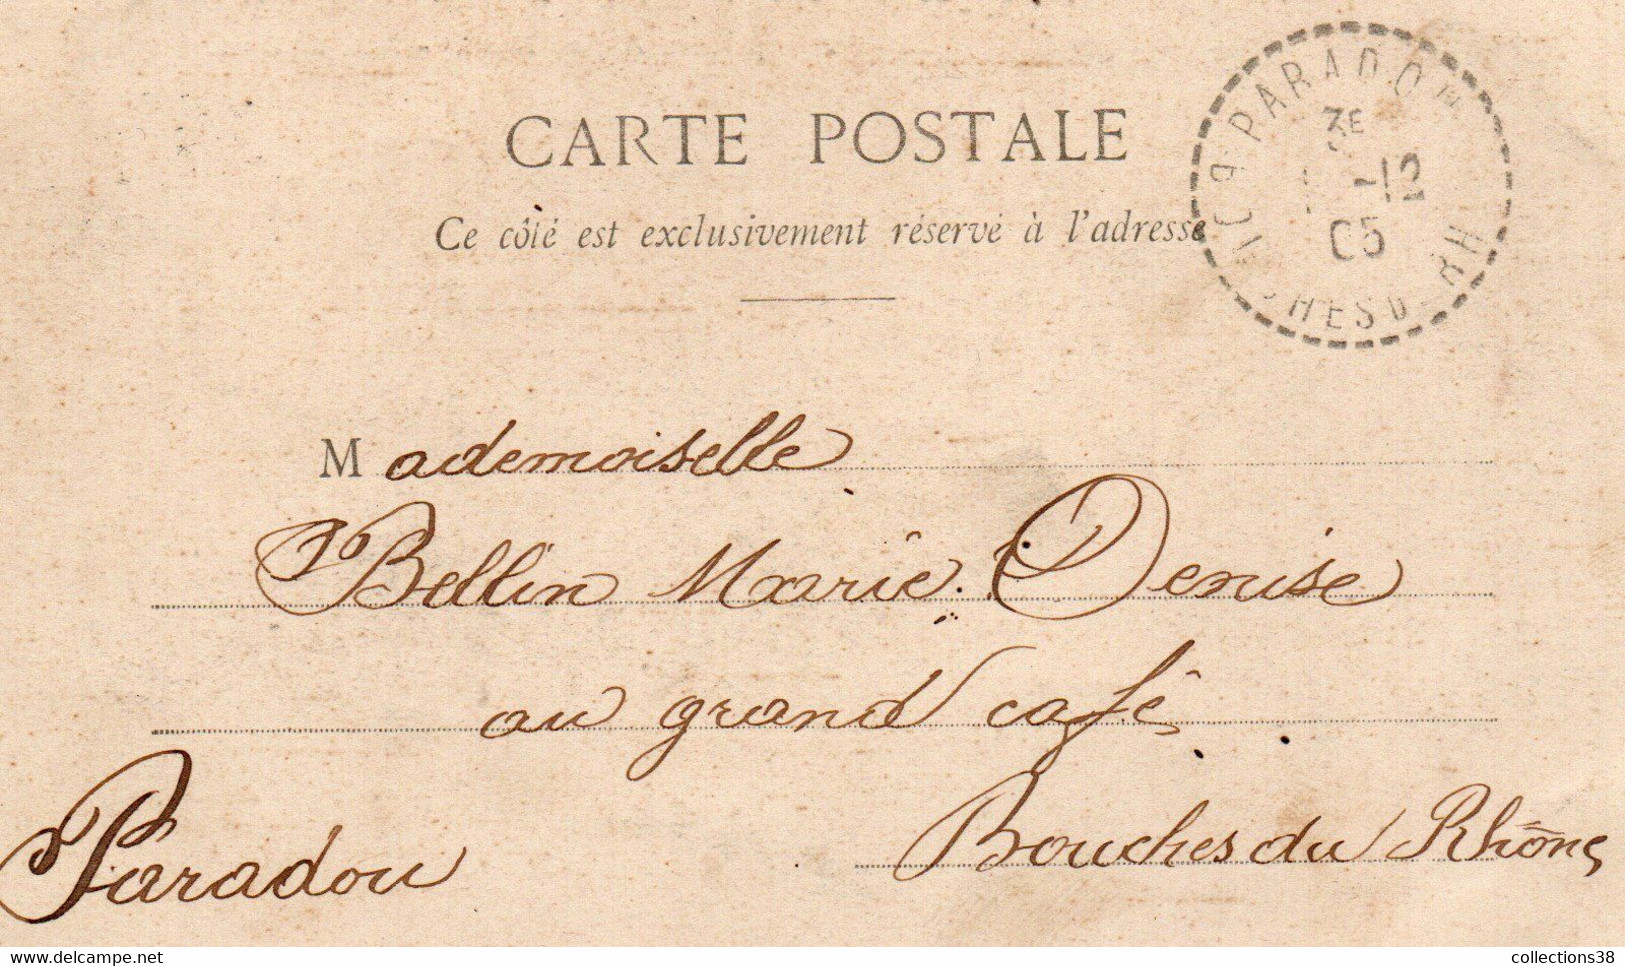 CARTE POSTALE
Ce côté est exclusivement réservé à l'adresse
PARADOU
3E
-12
05
Mademoiselle
Bellin Marie Denise
au grand café
Paradou Bouches du Rhône
www.delcampe.net
collections38